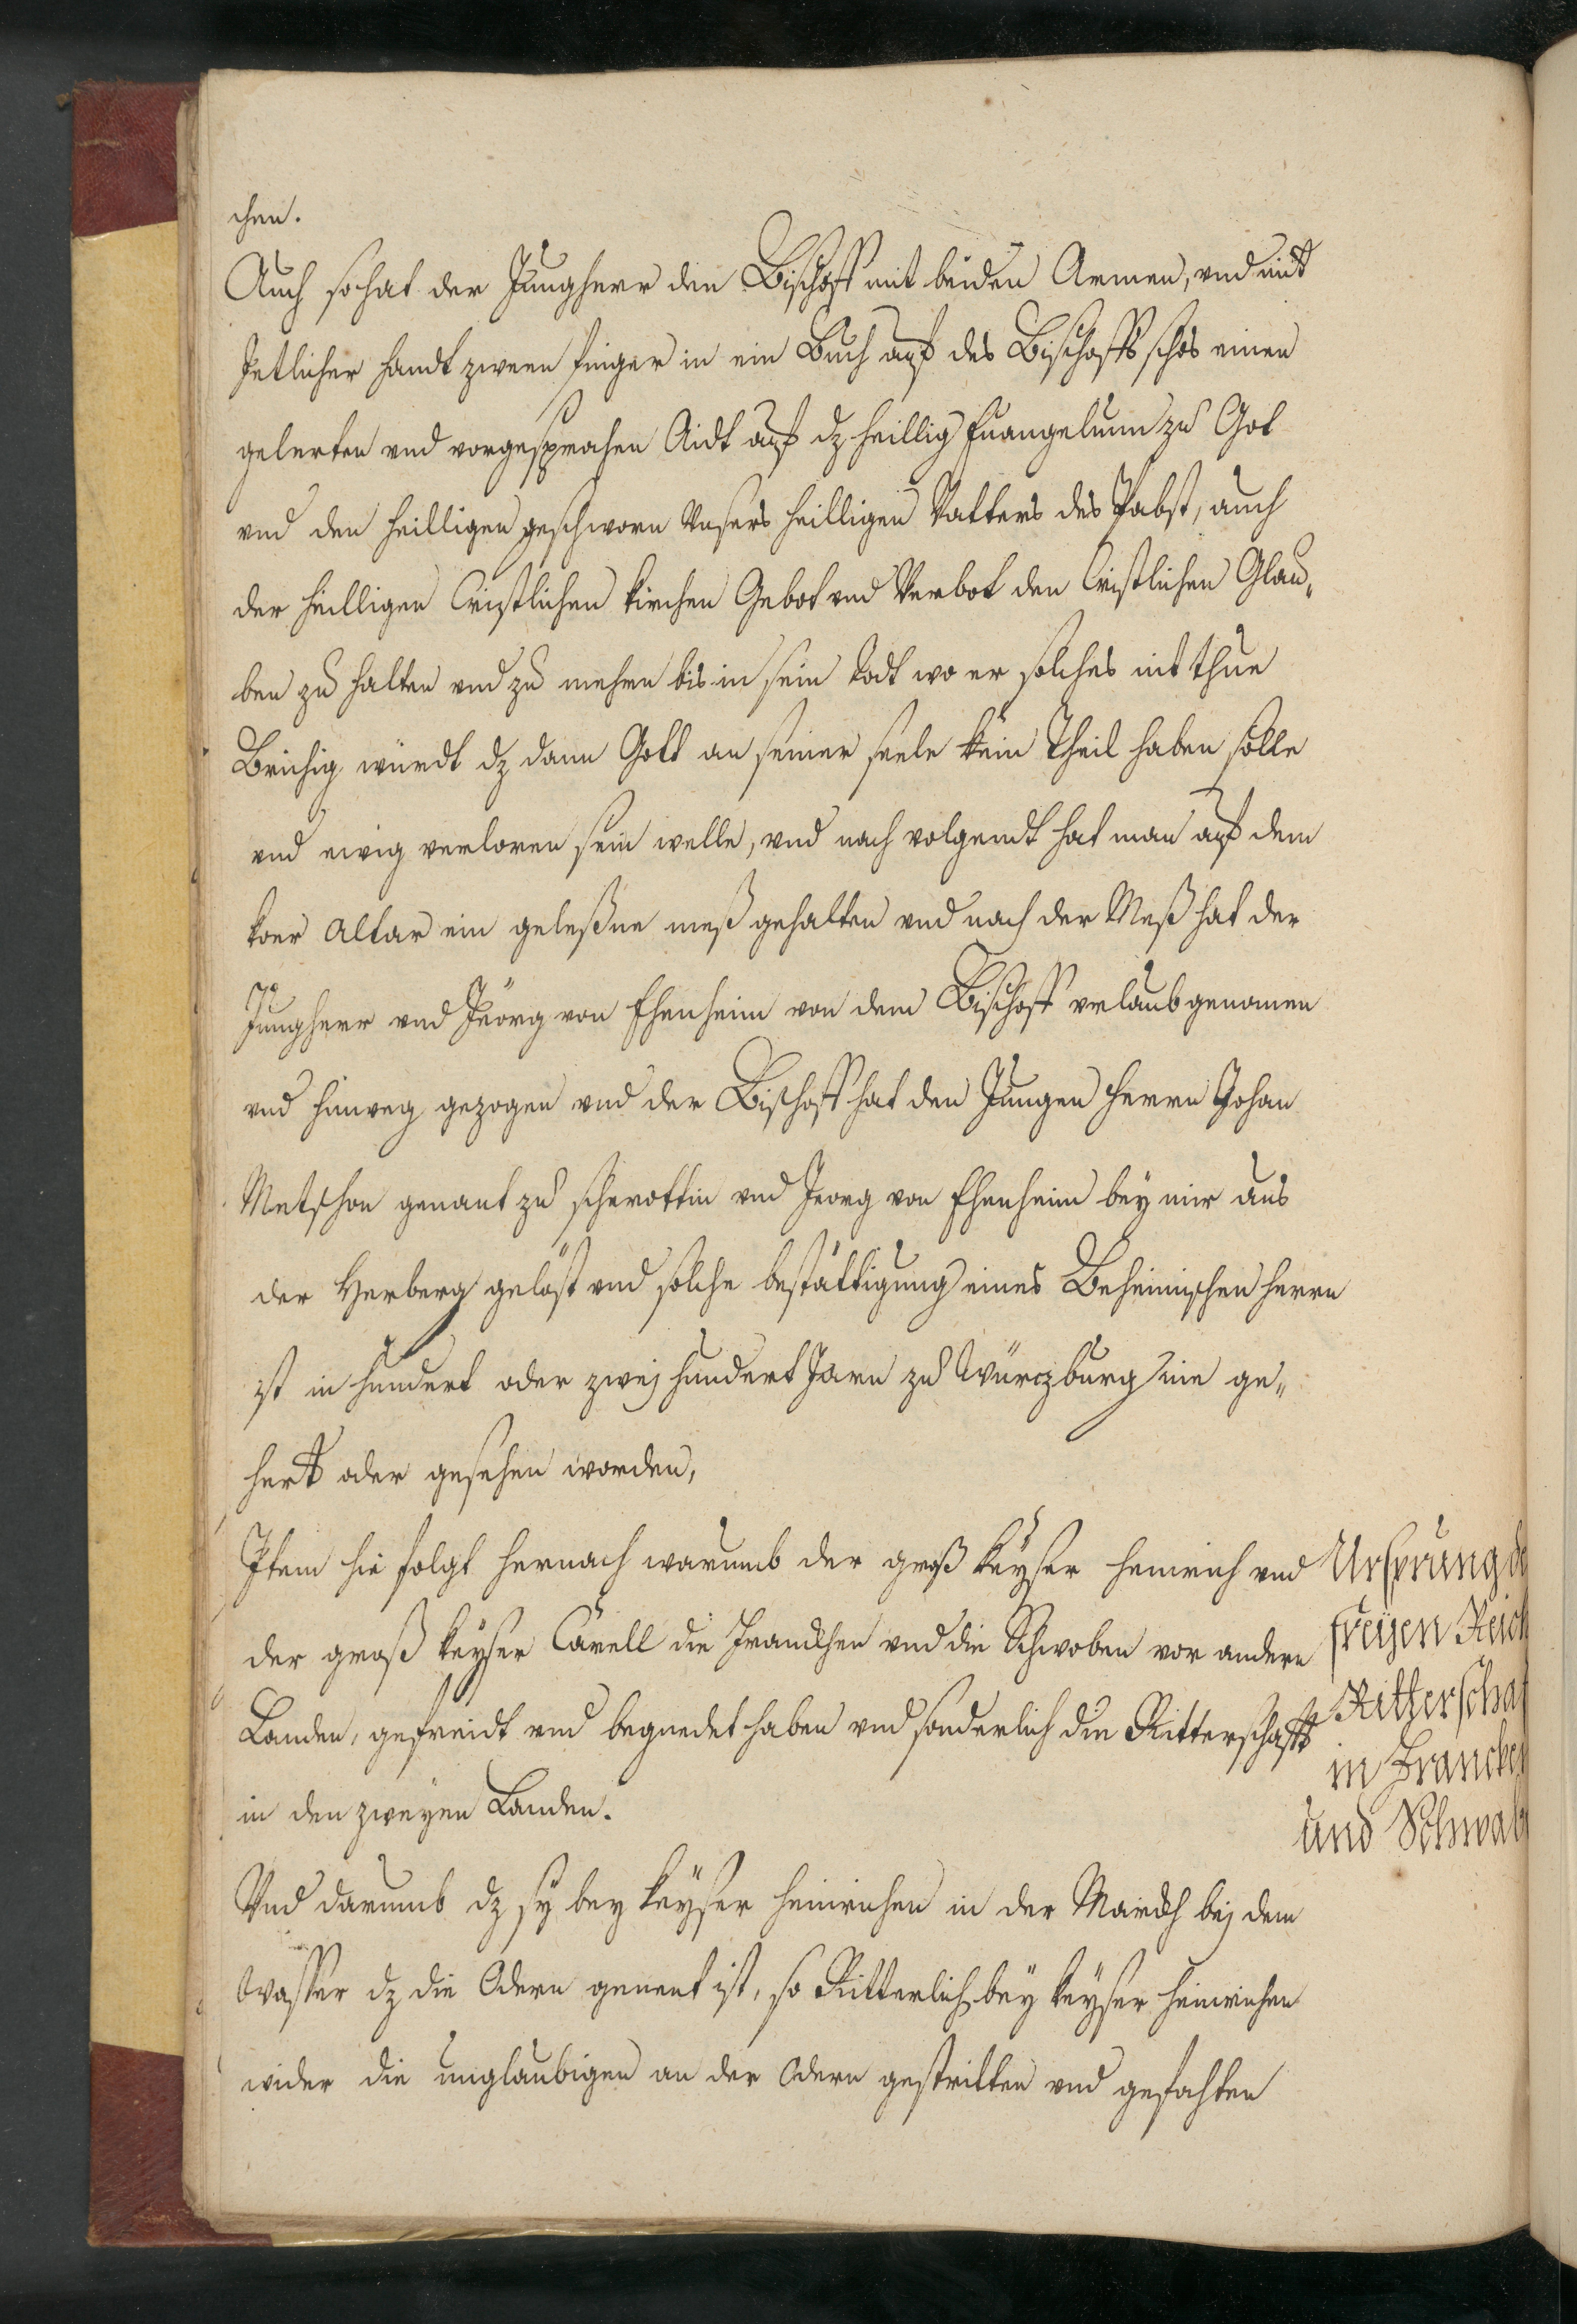 chen.
Auch so hat der Jungherr den Bischoff mit beiden Armen, vnd mit
Jetlicher handt zween finger in ein Buch auf des Bischoffs schos einen
gelerten vnd vorgesprochen Aidt auf dz heillig Euangelium zu Got
vnd den heilligen geschworn Vnsers heilligen Vatters des Pabst, auch
der heilligen Cristlichen kirchen Gebot vnd Verbot den Cristlichen Glau„
ben zu halten vnd zu mehren bis in sein todt wo er solches nit thue
Brichig würdt dz dann Gott an seiner seele kein Theil haben solle
vnd ewig verloren sein welle, vnd nach volgendt hat man auf dem
kor Altar ein geleßne meß gehalten vnd nach der Meß hat der
Jungherr vnd Jeörg von Ehenheim von dem Bischoff vrlaub genomen
vnd hinweg gezogen vnd der Bischoff hat den Jungen Herrn Johan
Metschon genant zu scherottin vnd Jeorg von Ehenheim bey mir aus
der Herberg gelöst vnd solche bestättigung eines Beheimischen herrn
ist in hundert oder zwej hundert Jarn zu Würczburg nie ge„
hert oder gesehen worden,
Item hie folgt hernach warumb der groß keyser heinrich vnd
der groß keyser Carell die Franckhen vnd die Schwoben vor andern
Landen, gefreidt vnd begnedet haben vnd sonderlich die Ritterschafft
in den zweyen Landen.
Vnd darumb dz sy bey keyser heinrichen in der Marckh bej dem
Wasser dz die Odern genent ist, so Ritterlich bey keyser heinrichen
wider die unglaubigen an der Odern gestritten vnd gefochten
Ursprung de
freyen Reich
Ritterschaf
in Francken
und Schwab